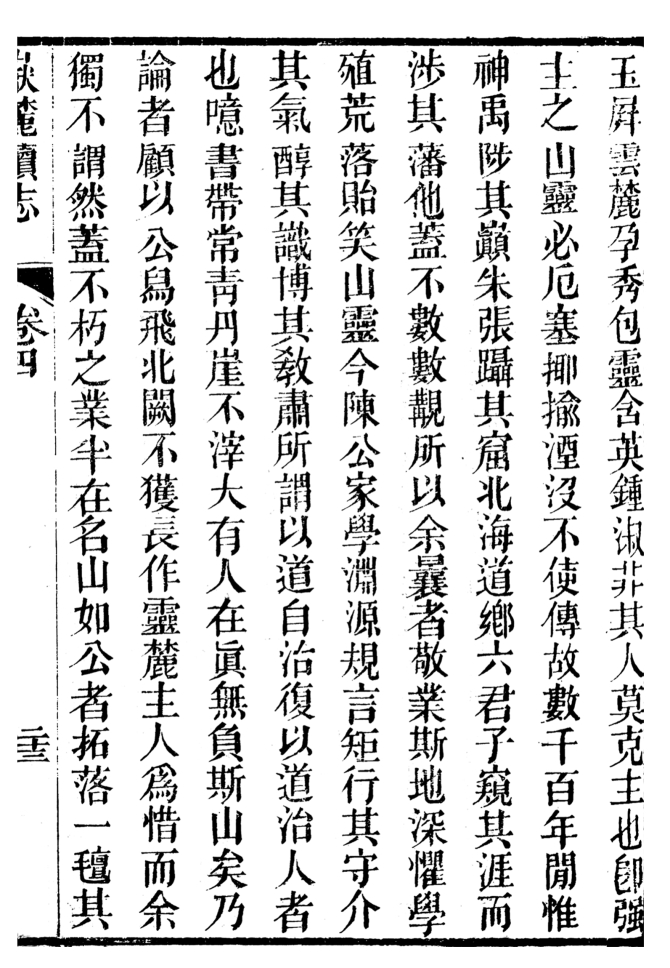 玉屛雲麓孕秀包靈含英鍾淑非其人莫克主也卽强
主之山靈必厄塞揶揄湮沒不使傳故數千百年閒惟
神禹陟其巔朱張躡其窟北海道鄕六君子窺其涯而
涉其藩他蓋不數數覯所以余曩者敬業斯地深懼學
殖荒落貽笑山靈今陳公家學淵源規言矩行其守介
其氣醇其識博其敎肅所謂以道自治復以道治人者
也噫書帶常靑丹崖不滓大有人在眞無負斯山矣乃
論者顧以公舄飛北闕不獲長作靈麓主人爲惜而余
獨不謂然蓋不朽之業半在名山如公者拓落一氊其
嶽麓續志
卷四
二十三